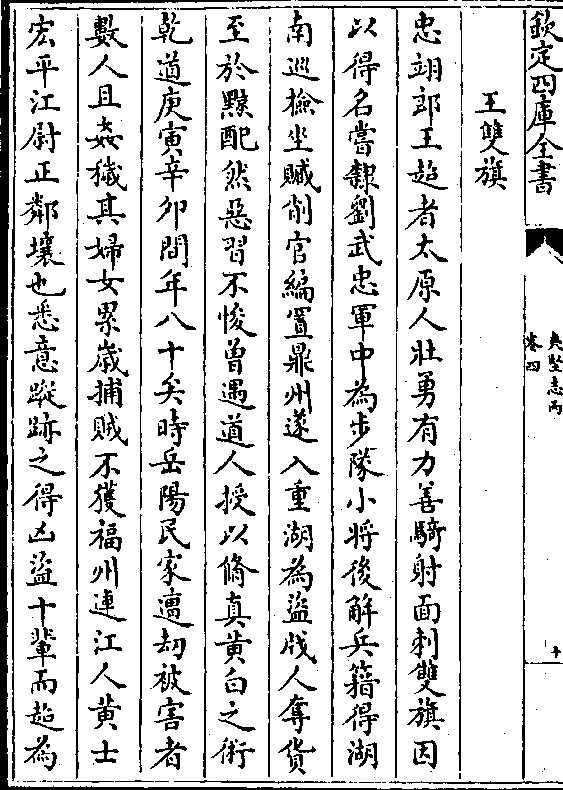 欽定四庫全書
夷堅志丙
卷四
十
王雙旗
忠翊郎王超者太原人壯勇有力善騎射面刺雙旗因
以得名嘗隸劉武忠軍中為步隊小將後解兵籍得湖
南巡檢坐贓削官編置鼎州遂入重湖為盜戕人奪貨
至於黥配然惡習不悛曽遇道人授以脩真黄白之術
乾道庚寅辛卯間年八十矣時岳陽民家遭刼被害者
數人且姦穢其婦女累歳捕賊不獲福州連江人黄士
宏平江尉正鄰壤也悉意蹤跡之得凶盜十輩而超為